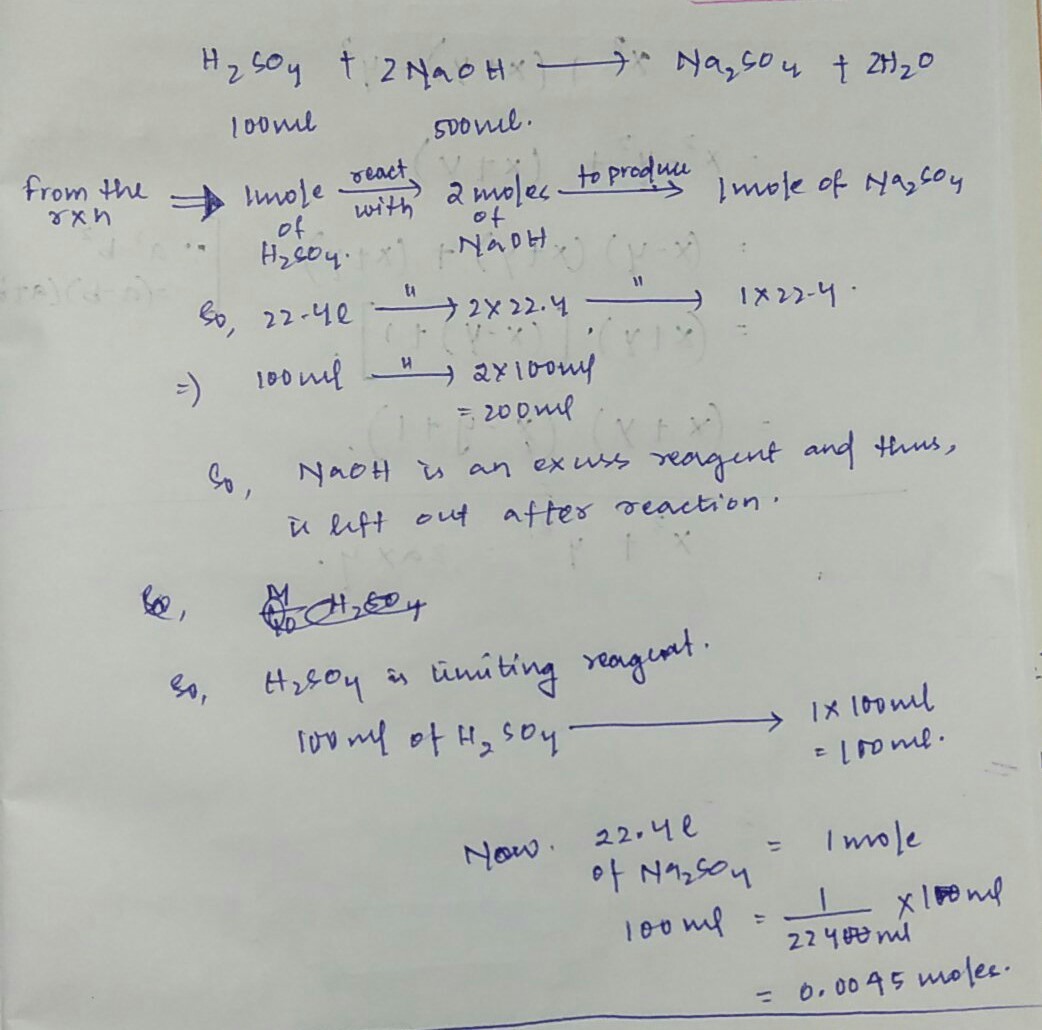 H2SO4 + 2NaOH → Na2SO4 + 2H2O
100ml 500ml.
from the rxn ⇒ 1mole of H2SO4. react with → 2 moles of NaOH to produce → 1 mole of Na2SO4
So, 22.4l —"→ 2×22.4 —"→ 1×22.4.
⇒) 100ml —"→ 2×100ml
= 200ml
So, NaOH is an excess reagent and thus,
is left out after reaction.
So,
So, H2SO4 is limiting reagent.
100ml of H2SO4 → 1×100ml
= 100ml.
Now. 22.4l of Na2SO4 = 1mole
100ml = 1/22400ml × 100ml
= 0.0045 moles.